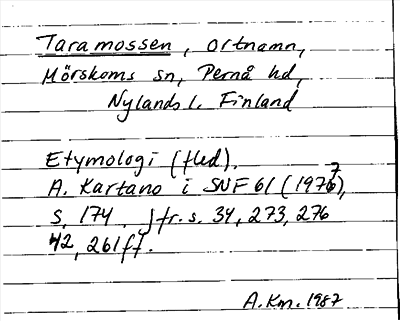 Taramossen, ortnamn,
Mörskoms sn, Pernå hd,
Nylands l. Finland
Etymologi (fled).
A. Kartano i SNF 61 (1977),
s. 174. Jfr. s. 34, 273, 276
42, 261ff.
A.Km. 1987